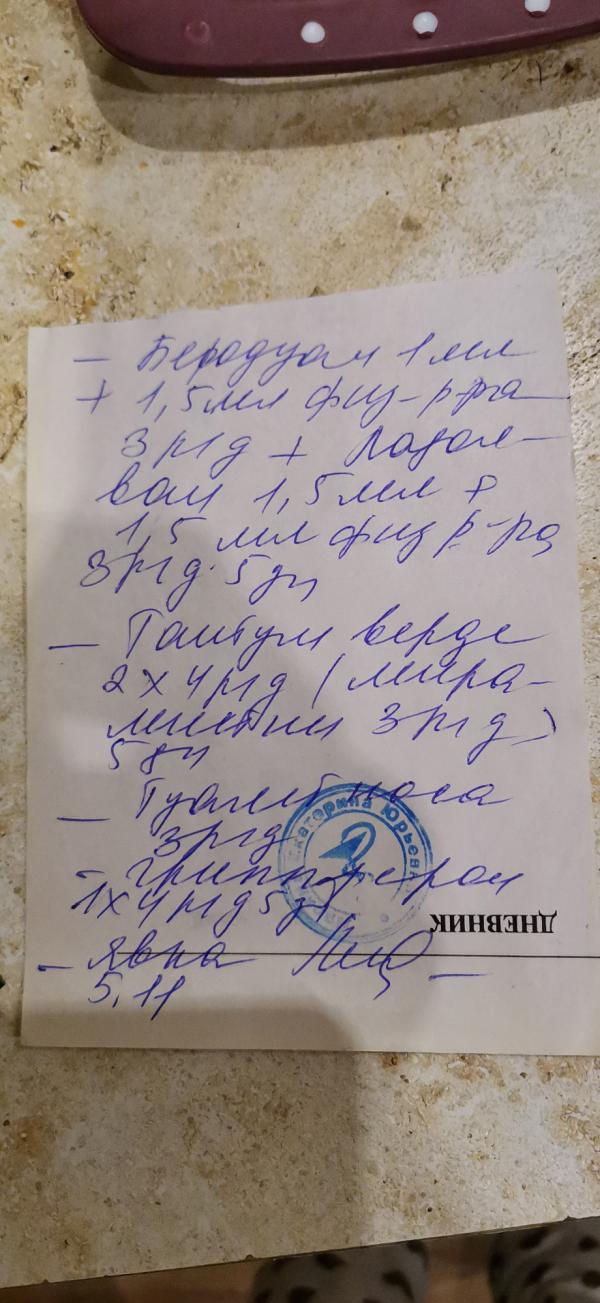 — Беродуал 1 мл
+ 1,5 мл физ-р-ра
3 р/д + Лазол-
ван 1,5 мл +
1,5 мл физ р-ра
3 р/д. 5 дн
— Тантум верде
2 х 4 р/д (мира-
мистин 3 р/д)
5 дн
— Туалет носа
3 р/д
- гриппферон
1 х 4 р/д 5 дн
— явка
5.11
Екатерина Юрьевна
ДНЕВНИК